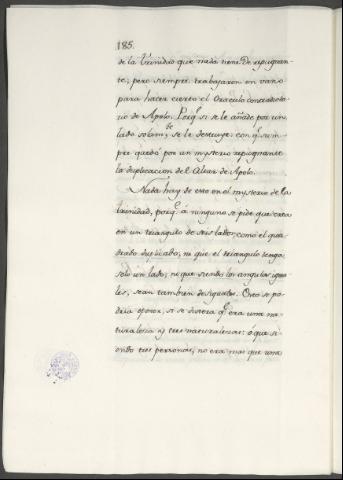 185.
de la Trinidad que nada tiene de repugnan-
te; pero siempre trabajaron en vano
para hacer cierto el Oraculo contradicto-
rio de Apolo. Porq.e si se le añade por un
lado solam.te se le destruye: con q.e siem-
pre quedó por un mysterio repugnante
la duplicacion del Altar de Apolo.
Nada hay de esto en el mysterio de la
trinidad, porq.e á ninguno se pide que crea
en un triangulo de seis lados, como el qua-
drado duplicado, ni que el triangulo tenga
solo un lado, ni que siendo los angulos igua-
les, sean tambien desiguales. Esto se po-
dria oponer, si se dixera q.e era una na-
turaleza y tres naturalezas: ó que si-
endo tres personas, no era mas que una